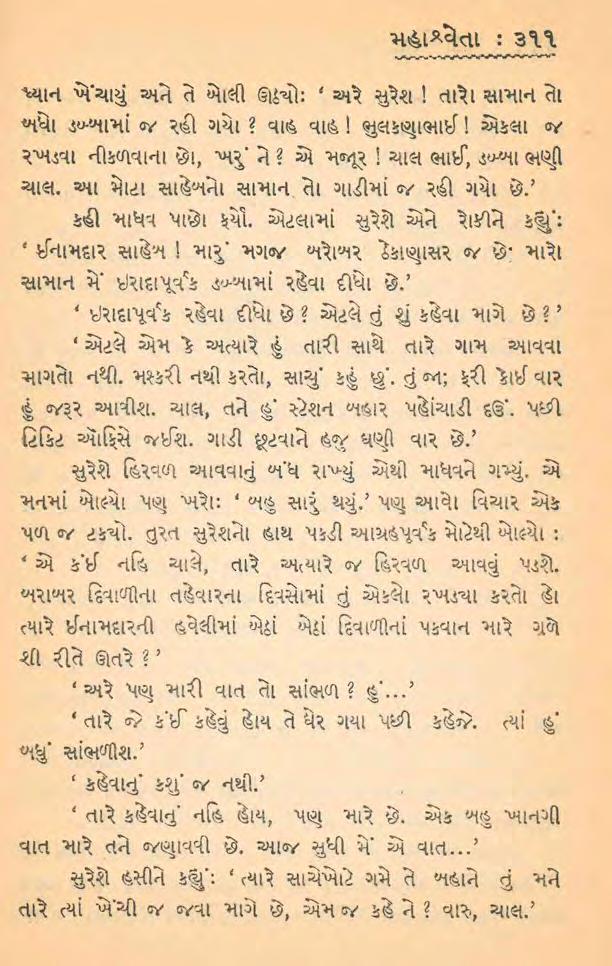 મહાશ્વેતા : ૩૧૧
ધ્યાન ખેંચાયું અને તે બોલી ઊઠ્યો: ‘ અરે સુરેશ ! તારો સામાન તો
બધો ડબ્બામાં જ રહી ગયો ? વાહ વાહ ! ભુલકણાભાઈ ! એકલા જ
રખડવા નીકળવાના છો, ખરું ને ? એ મજૂર ! ચાલ ભાઈ, ડબ્બા ભણી
ચાલ. આ મોટા સાહેબનો સામાન તો ગાડીમાં જ રહી ગયો છે.’
કહી માધવ પાછો ફર્યો. એટલામાં સુરેશે એને રોકીને કહ્યું:
‘ ઈનામદાર સાહેબ ! મારું મગજ બરોબર ઠેકાણાસર જ છે. મારો
સામાન મેં ઇરાદાપૂર્વક ડબ્બામાં રહેવા દીધો છે.’
‘ ઇરાદાપૂર્વક રહેવા દીધો છે ? એટલે તું શું કહેવા માગે છે ? ’
‘ એટલે એમ કે અત્યારે હું તારી સાથે તારે ગામ આવવા
માગતો નથી. મશ્કરી નથી કરતો, સાચું કહું છું. તું જા; ફરી કોઈ વાર
હું જરૂર આવીશ. ચાલ, તને હું સ્ટેશન બહાર પહોંચાડી દઉં. પછી
ટિકિટ ઑફિસે જઈશ. ગાડી છૂટવાને હજુ ઘણી વાર છે.’
સુરેશે હિરવળ આવવાનું બંધ રાખ્યું એથી માધવને ગમ્યું. એ
મનમાં બોલ્યો પણ ખરો: ‘ બહુ સારું થયું.’ પણ આવો વિચાર એક
પળ જ ટક્યો. તુરત સુરેશનો હાથ પકડી આગ્રહપૂર્વક મોટેથી બોલ્યો :
‘ એ કંઈ નહિ ચાલે, તારે અત્યારે જ હિરવળ આવવું પડશે.
બરાબર દિવાળીના તહેવારના દિવસોમાં તું એકલો રખડ્યા કરતો હો
ત્યારે ઈનામદારની હવેલીમાં બેઠાં બેઠાં દિવાળીનાં પકવાન મારે ગળે
શી રીતે ઊતરે ? ’
‘ અરે પણ મારી વાત તો સાંભળ ? હું...’
‘ તારે જે કંઈ કહેવું હોય તે ઘેર ગયા પછી કહેજે. ત્યાં હું
બધું સાંભળીશ.’
‘ કહેવાનું કશું જ નથી.’
‘ તારે કહેવાનું નહિ હોય, પણ મારે છે. એક બહુ ખાનગી
વાત મારે તને જણાવવી છે. આજ સુધી મેં એ વાત...’
સુરેશે હસીને કહ્યું: ‘ ત્યારે સાચેખોટે ગમે તે બહાને તું મને
તારે ત્યાં ખેંચી જ જવા માગે છે, એમ જ કહે ને ? વારુ, ચાલ.’